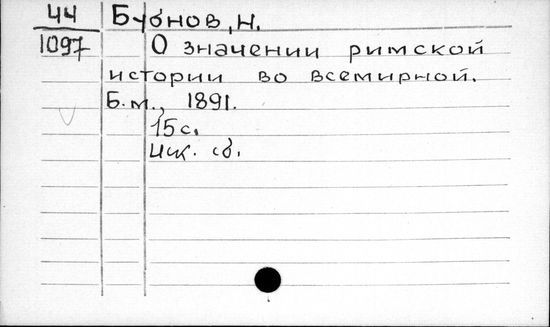 44 Бубнов, Н.
1097 О значении римской
истории во всемирной.
Б.м., 1891.
15с.
Иск. сб.